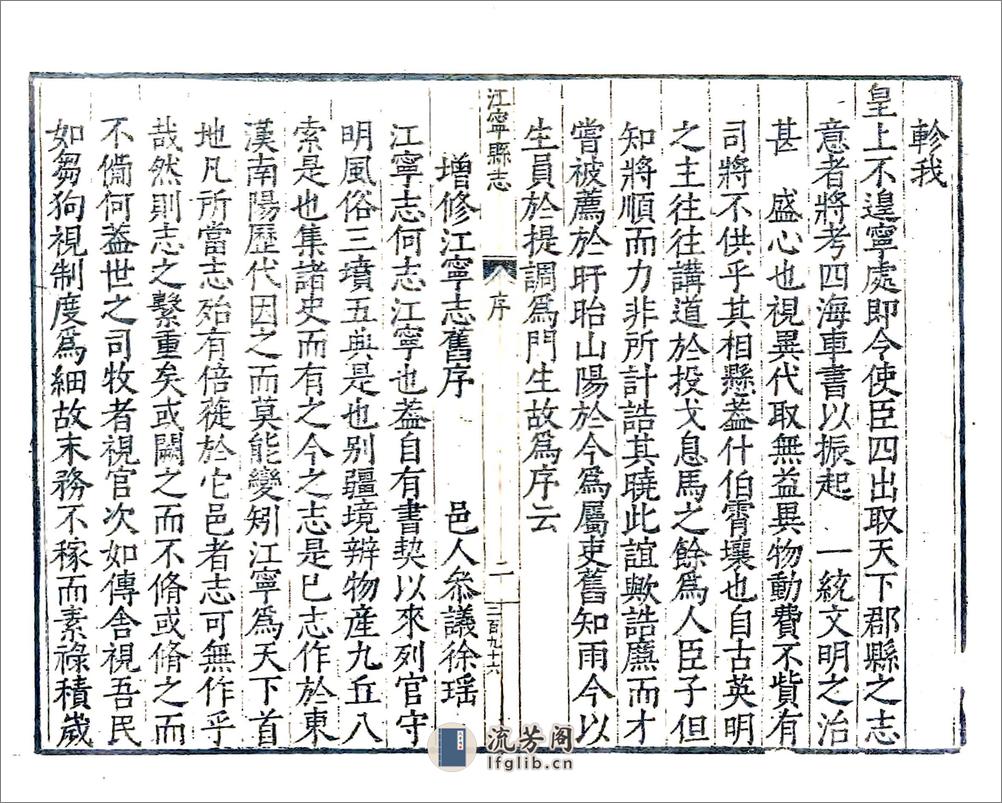 軫我
皇上不遑寧處即今使臣四出取天下郡縣之志
意者將考四海車書以振起　一統文明之治
甚　盛心也視異代取無益異物動費不貲有
司將不供乎其相懸葢什伯霄壤也自古英明
之主往往講道於投戈息馬之餘爲人臣子但
知將順而力非所計誥其曉此誼歟誥廌而才
嘗被薦於盱眙山陽於今爲屬吏舊知雨今以
生員於提調爲門生故爲序云
江寧縣志　序　二　三百九十六
增修江寧志舊序　邑人叅議徐瑶
江寧志何志江寧也葢自有書契以來列官守
明風俗三墳五典是也别疆境辨物產九丘八
索是也集諸史而有之今之志是已志作於東
漢南陽歷代因之而莫能變矧江寧爲天下首
地凡所當志殆有倍蓰於它邑者志可無作乎
哉然則志之繫重矣或闕之而不脩或脩之而
不僃何葢世之司牧者視官次如傳舍視吾民
如芻狗視制度爲細故末務不稼而素祿積歲
流芳阁
lfglib.cn